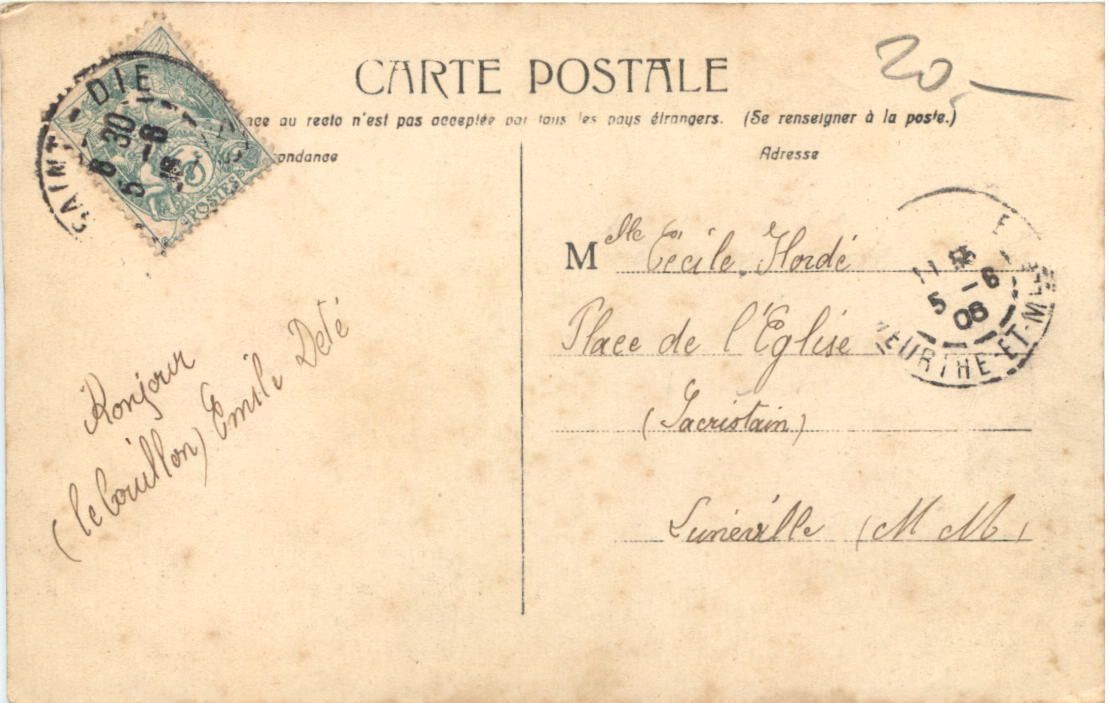 CARTE POSTALE
20,-
nce au recto n'est pas acceptée par tous les pays étrangers. (Se renseigner à la poste.)
ondance
Adresse
SAINT-DIE
8 30
5 -6
POSTES
Mlle Cécile Hordé
Place de l'Eglise
(Sacristain)
Lunéville (M M)
5 -6
06
MEURTHE-ET-M
Bonjour
(le bouillon) Emile Deté